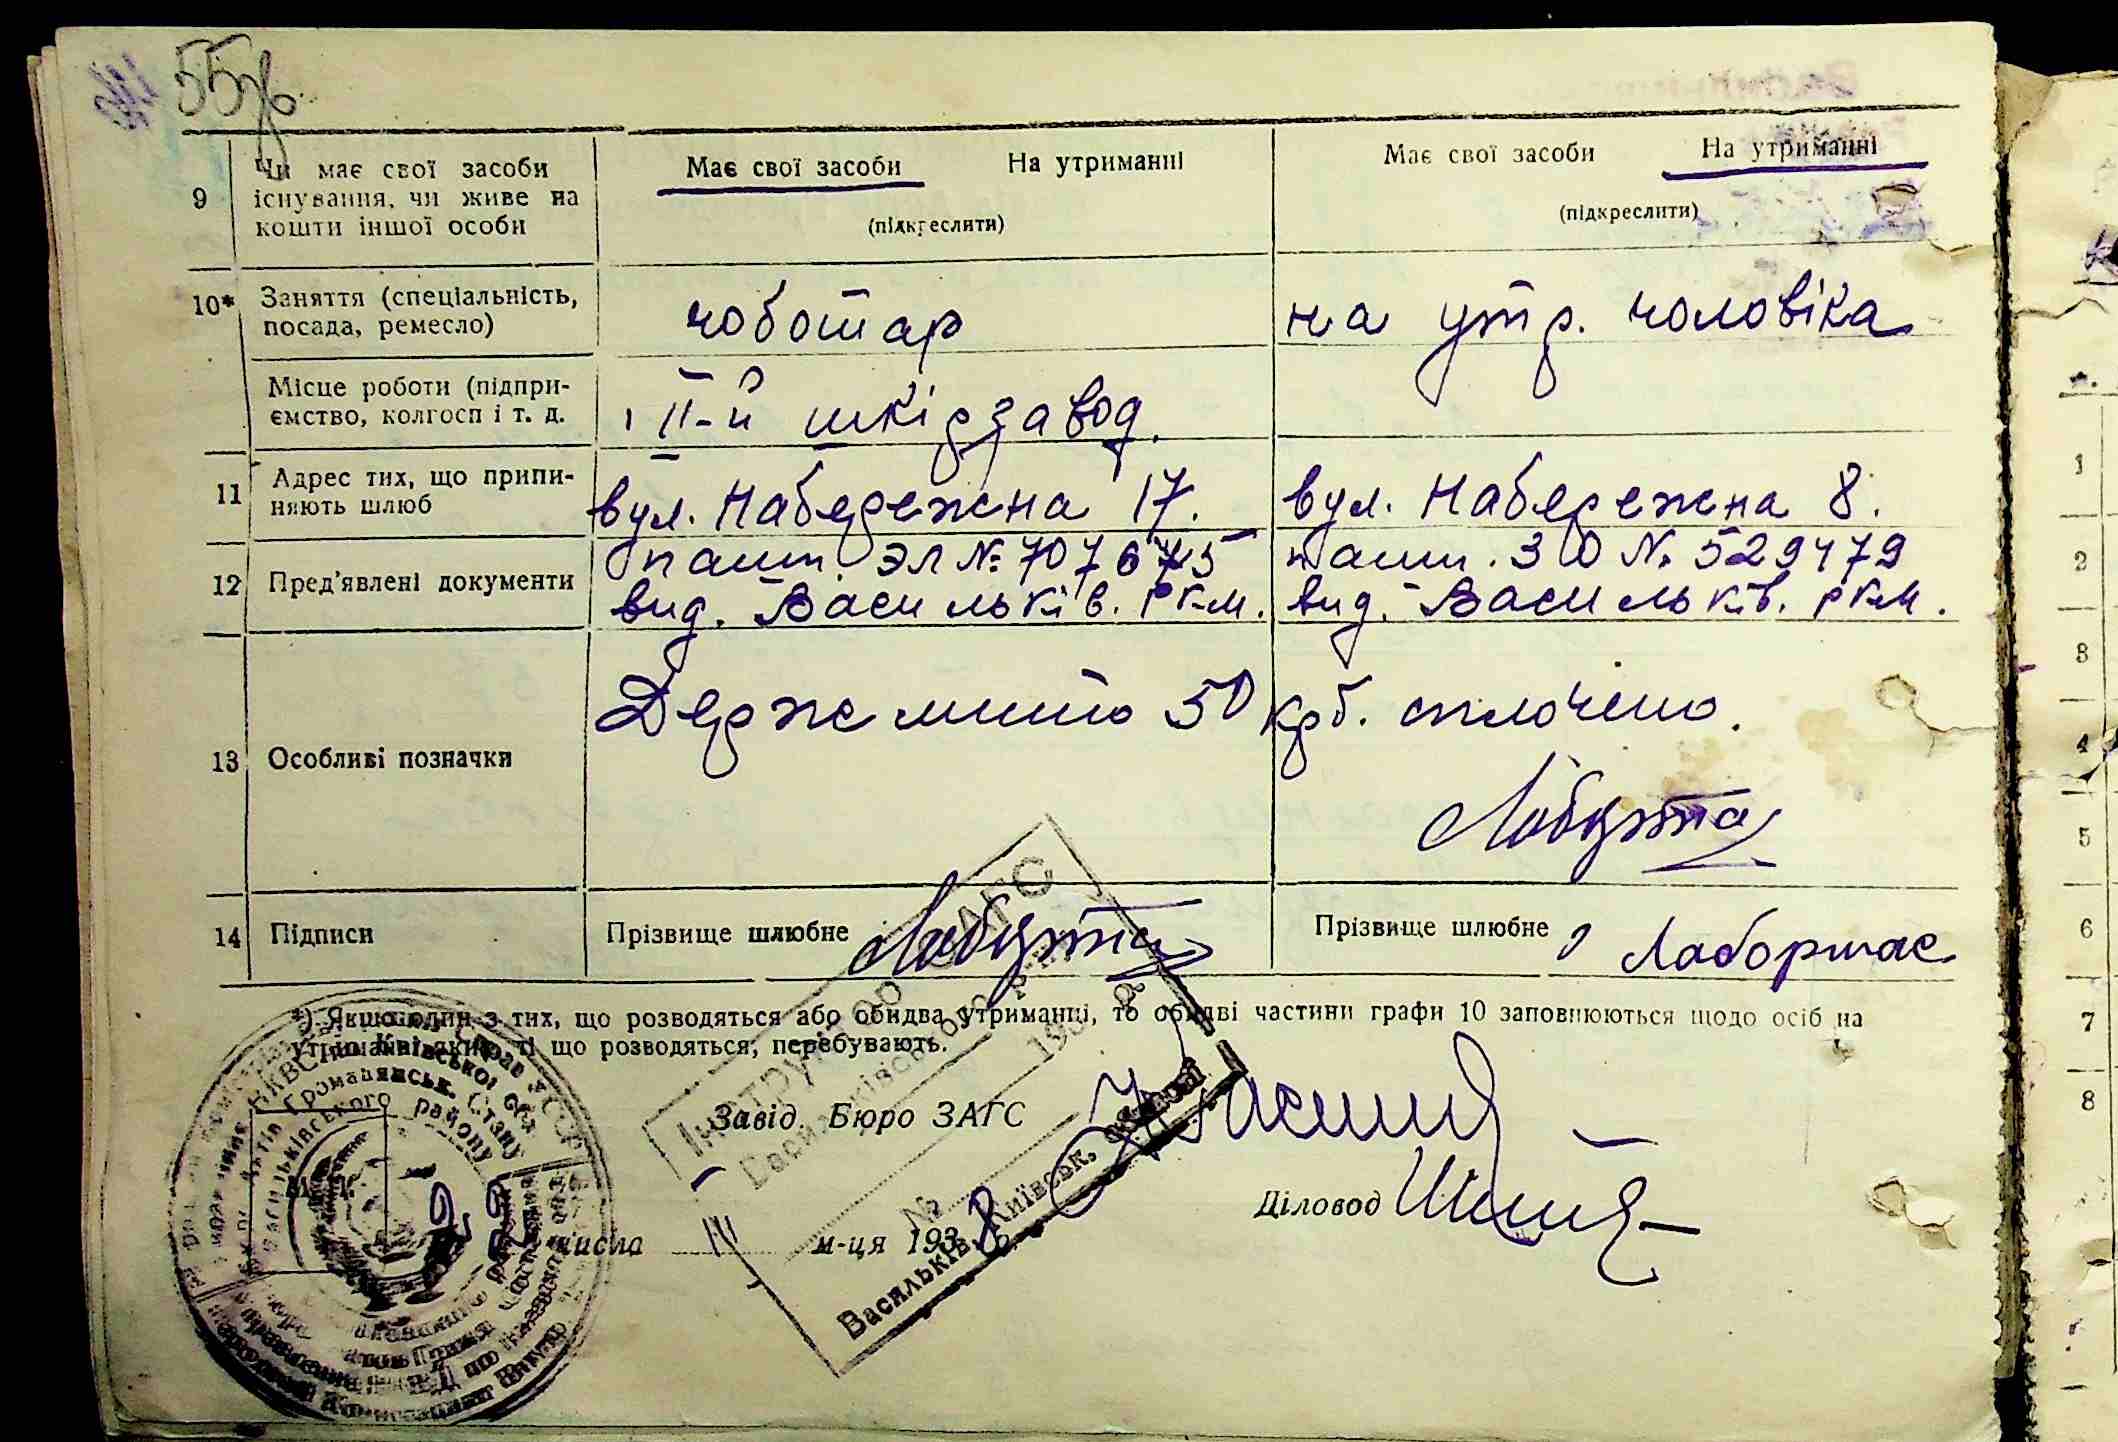 55
9 Чи має свої засоби існування, чи живе на кошти іншої особи
Має свої засоби На утриманні
(підкреслити)
Має свої засоби На утриманні
(підкреслити)
10* Заняття (спеціальність, посада, ремесло)
чоботар
на утр. чоловіка
Місце роботи (підпри-
ємство, колгосп і т. д.
ІІ-й шкірзавод.
11 Адрес тих, що припи-
няють шлюб
вул. Набережна 17.
вул. Набережна 8.
12 Пред'явлені документи
пашп. ЭЛ №
вид. Васильків. РКМ.
пашп. ЗО № 529479
вид. Васильків. РКМ.
13 Особливі позначки
Держмито 50 крб. сплочено.
14 Підписи
Прізвище шлюбне
Прізвище шлюбне
*) Якщо один з тих, що розводяться або обидва утриманці, то обидві частини графи 10 заповнюються щодо осіб на
що розводяться, перебувають.
Завід. Бюро ЗАГС
Діловод
числа м-ця 1938
Інструктор ЗАГС
Васильківського
№
193
Васильків, Київськ. області
1
2
3
4
5
6
7
8